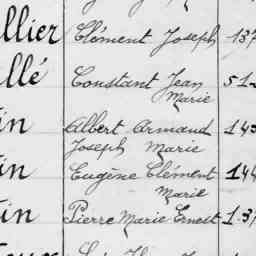 llier Clément Joseph 137
llé Constant Jean 51
Marie
in Albert Armand 145
Joseph Marie
in Eugène Clément 144
Marie
in Pierre Marie Ernest 131